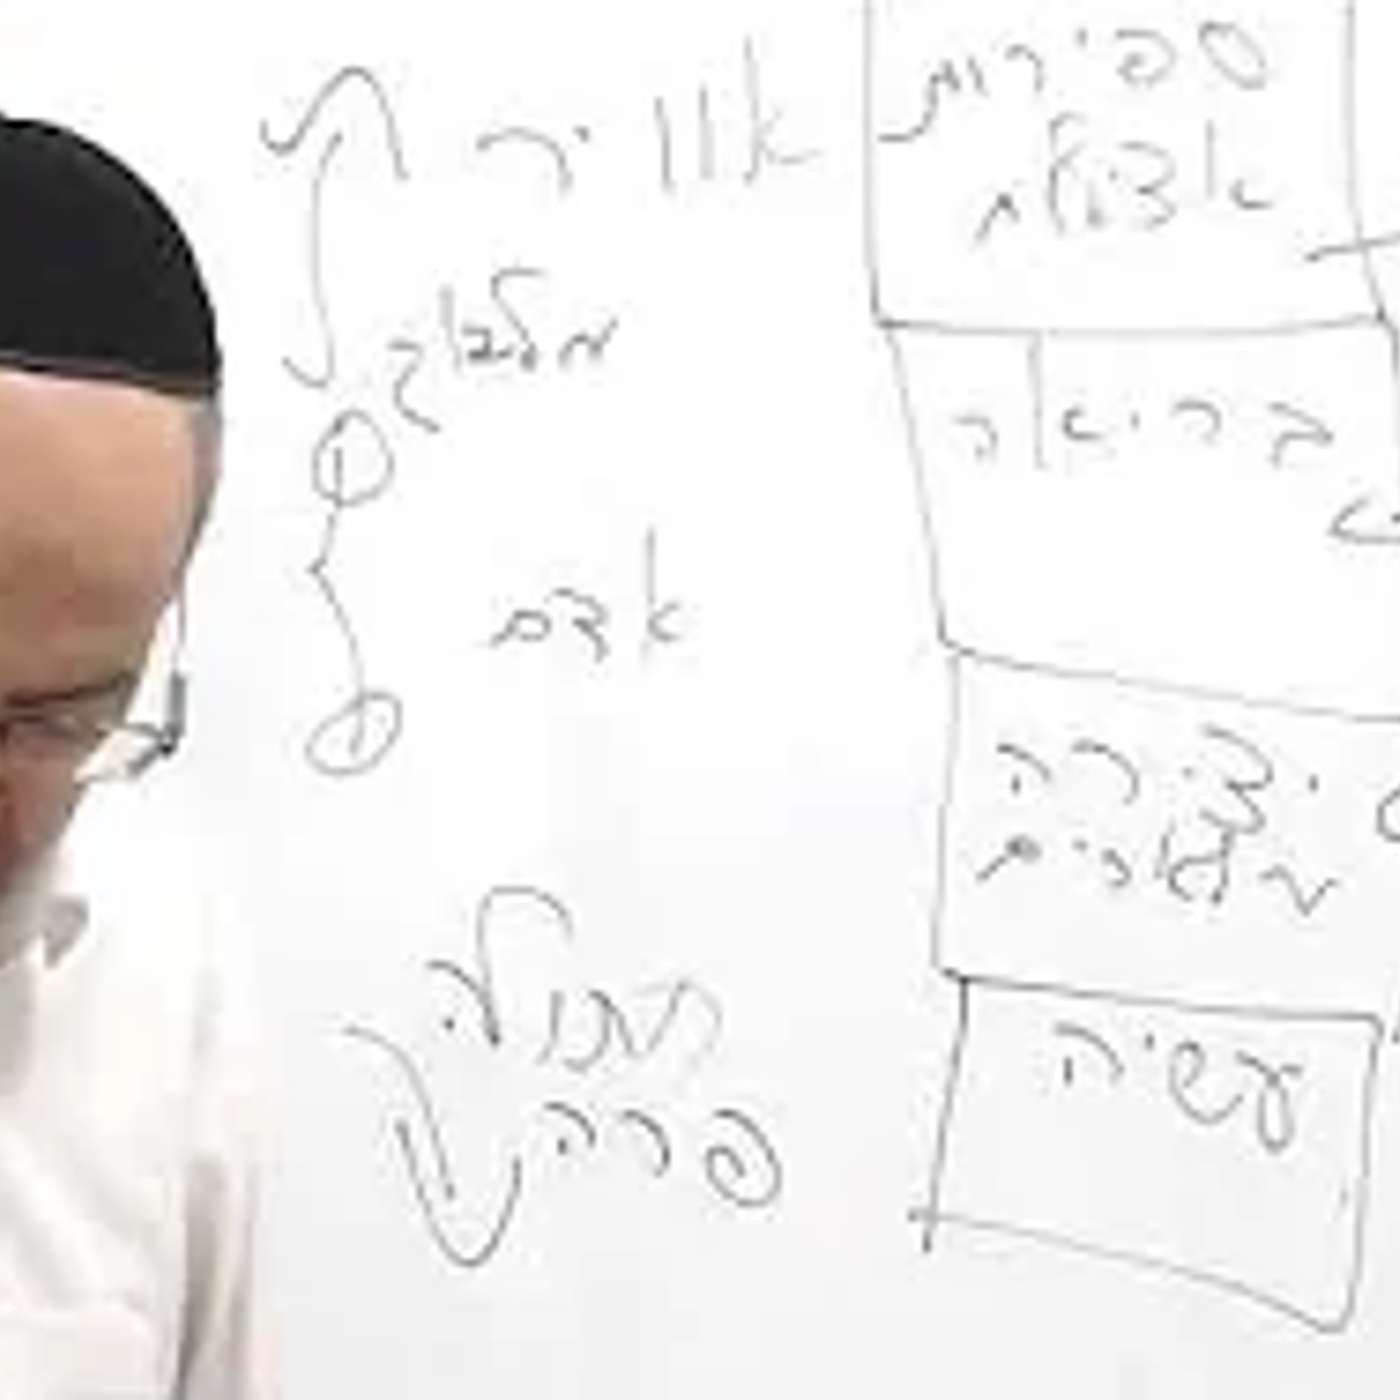 ספירות
אצילות
בריאה
יצירה
מלאכים
עשיה
אוויר
מלאך
אדם
חתול
פרה